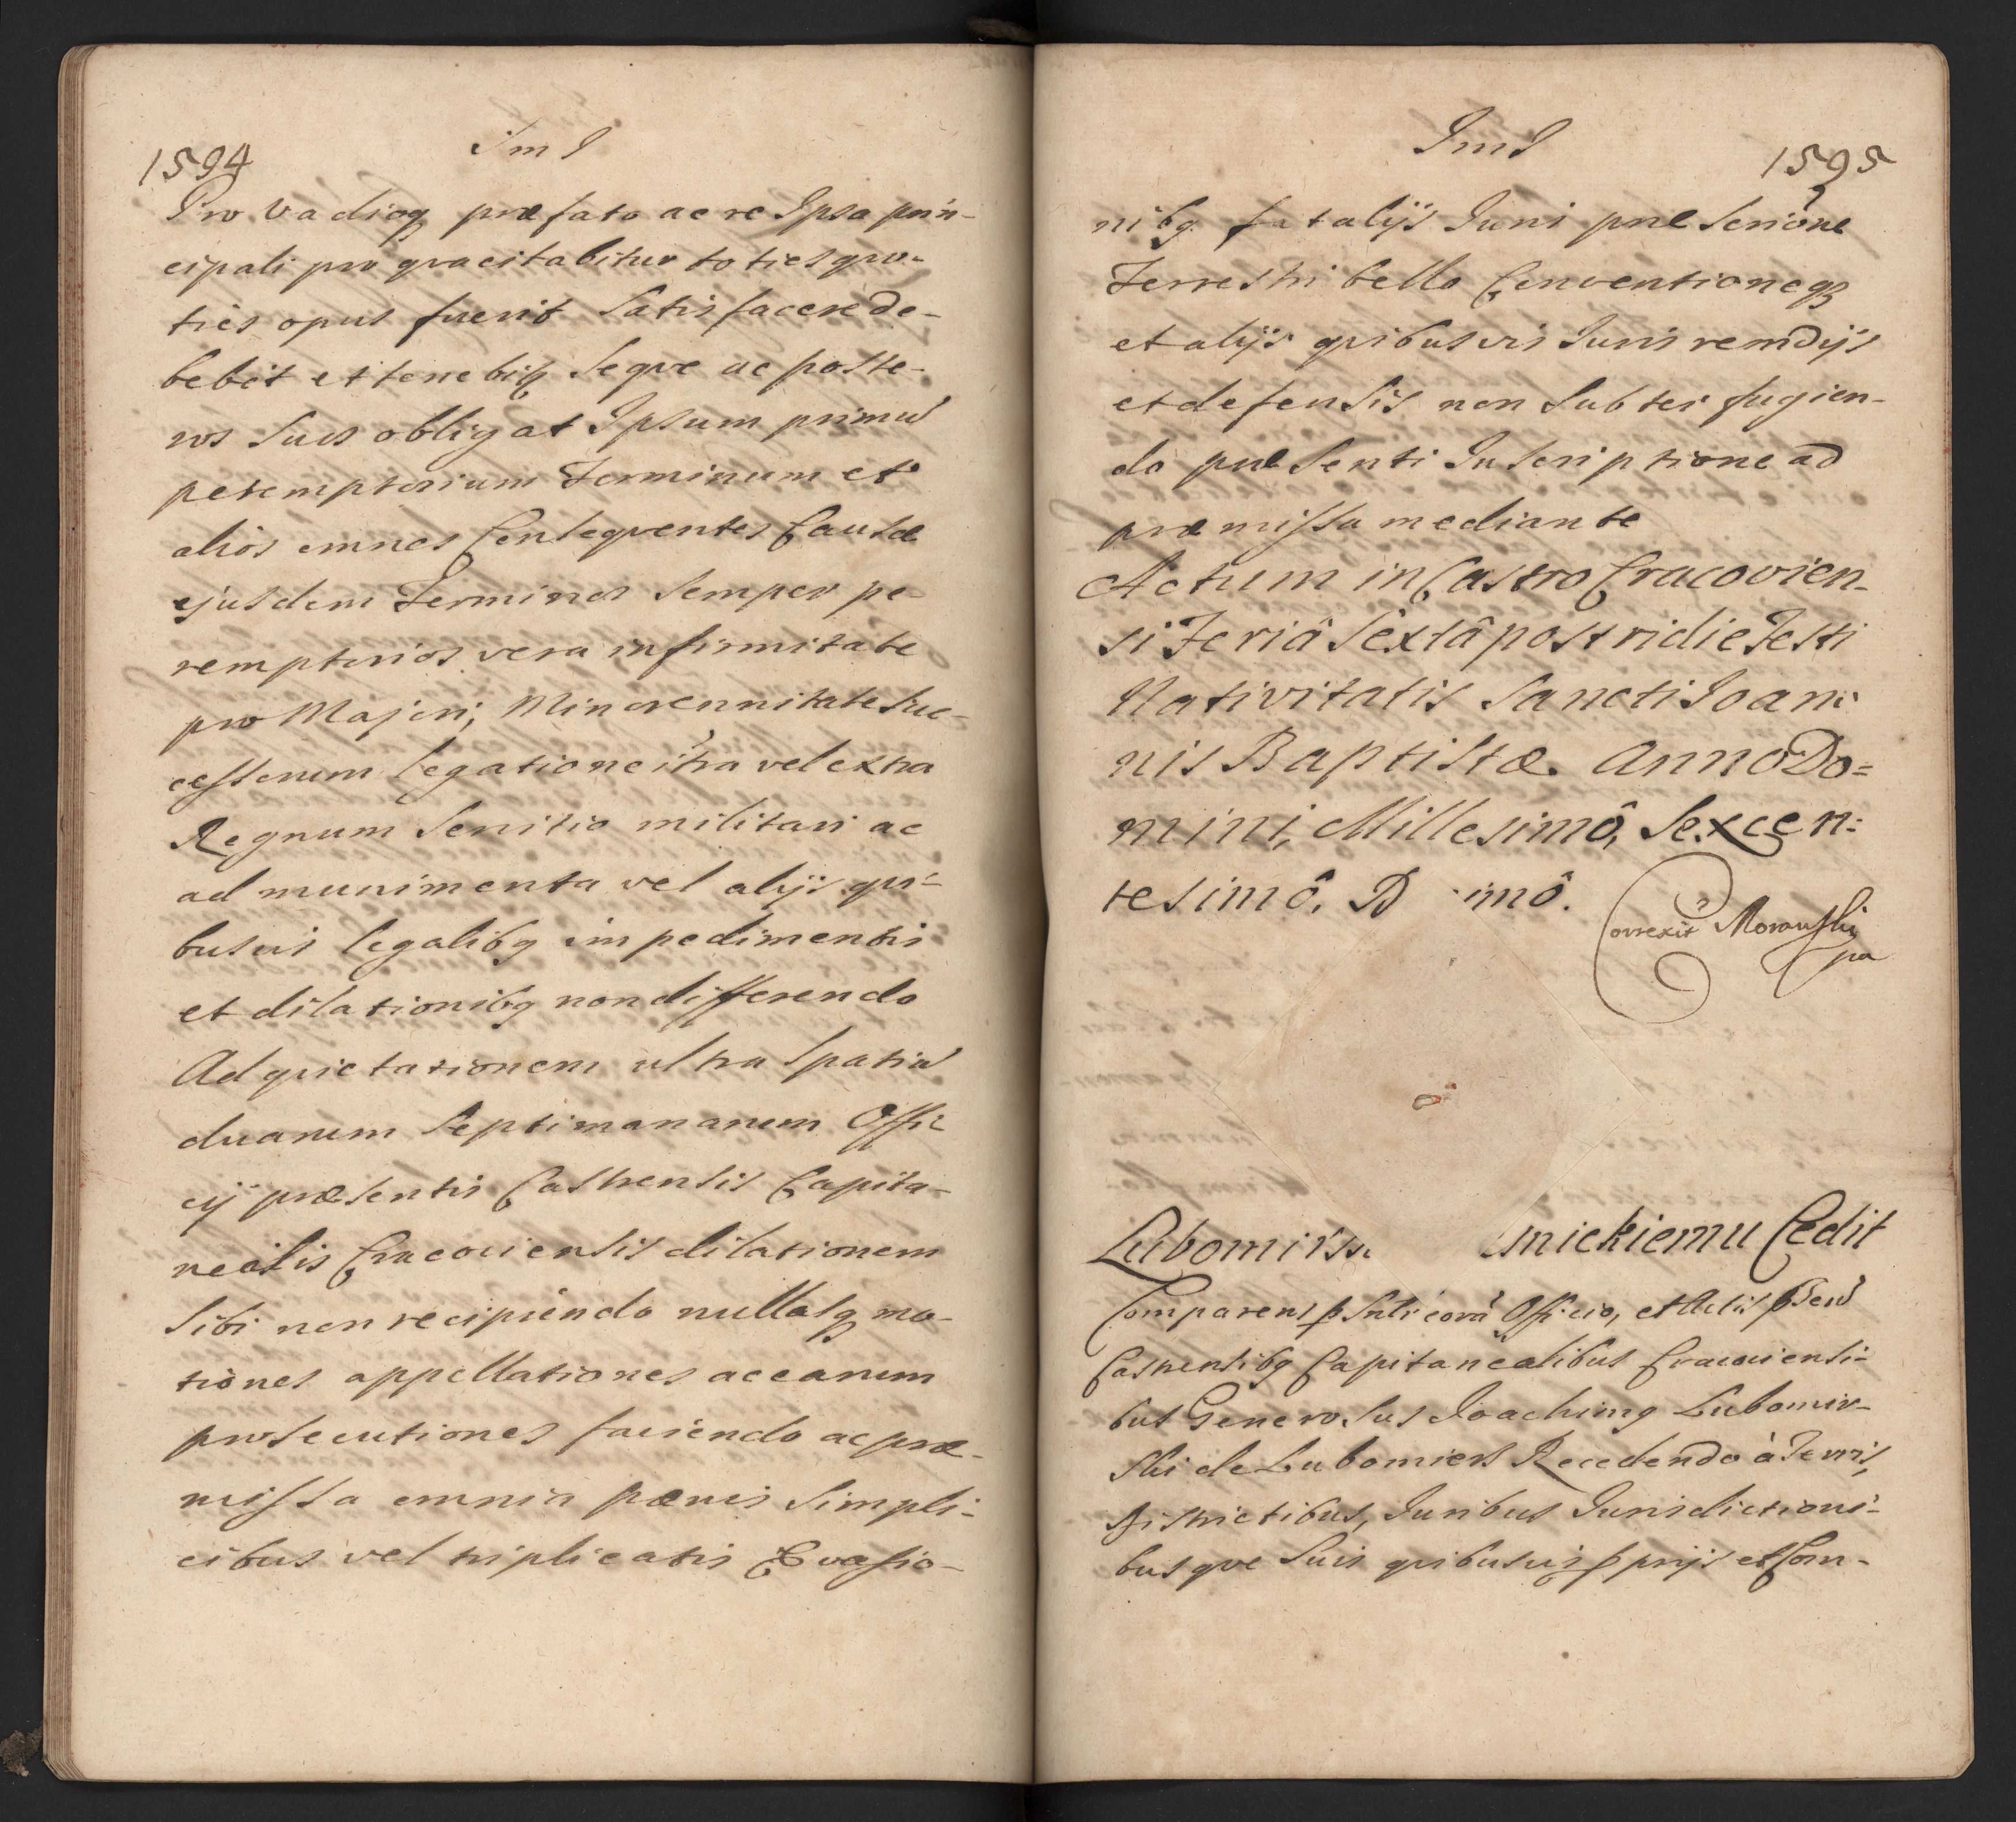 1594
Ind
Pro Vadioq præfato ac re Ipsa prin-
cipali pro qva citabitur toties qvo-
ties opus fuerit Satisfacere de-
bebit et tenebitq Seqve ac poste-
ros Suos obligat Ipsum primū
peremptorium Terminum et
alios omnes Conseqventes Causæ
ejusdem Terminos Semper pe-
remptorios vera infirmitate
pro Majori, Minorennitate Suc-
cessorum legatione itra vel extra
Regnum Servitio militari ac
ad munimenta vel alijs qvi-
busvis legalibq impedimentis
et dilationibq non differendo
Ad qvietationem ultra Spatiū
duarum Septimanarum Offi-
cij præsentis Castrensis Capita-
nealis Cracoviensis dilationem
Sibi non recipiendo nullasq mo-
tiones appellationes ac earum
prosecutiones faciendo ac præ-
missa omnia pænis Simpli-
cibus vel triplicatis Evasio-
Ind
1595
nibq fatalijs Juri præscrione
Terrestri bello Conventioneqз
et alijs qvibusvis Juris remdijs
et defensis non Subterfugien-
do præsenti Inscriptione ad
præmissa mediante
Actum in Castro Cracovien-
si Feriâ Sextâ postridie Festi
Nativitatis Sancti Joan:
nis Baptistæ. Anno Do=
mini, Millesimô, Sexcen:
tesimô, D imô.
Correxit Morawski
pa
Lubomirs nickiemu Cedit
Comparens psnlr corā Officio, et Actis pbsen
Castrensibq Capitanealibus Cracoviensi-
bus Generosus Joachimq Lubomir-
ski de Lubomierz Recedendo à Terris,
Districtibus, Juribus Jurisdictioni-
busqve Suis qvibusvis pprijs et Com-